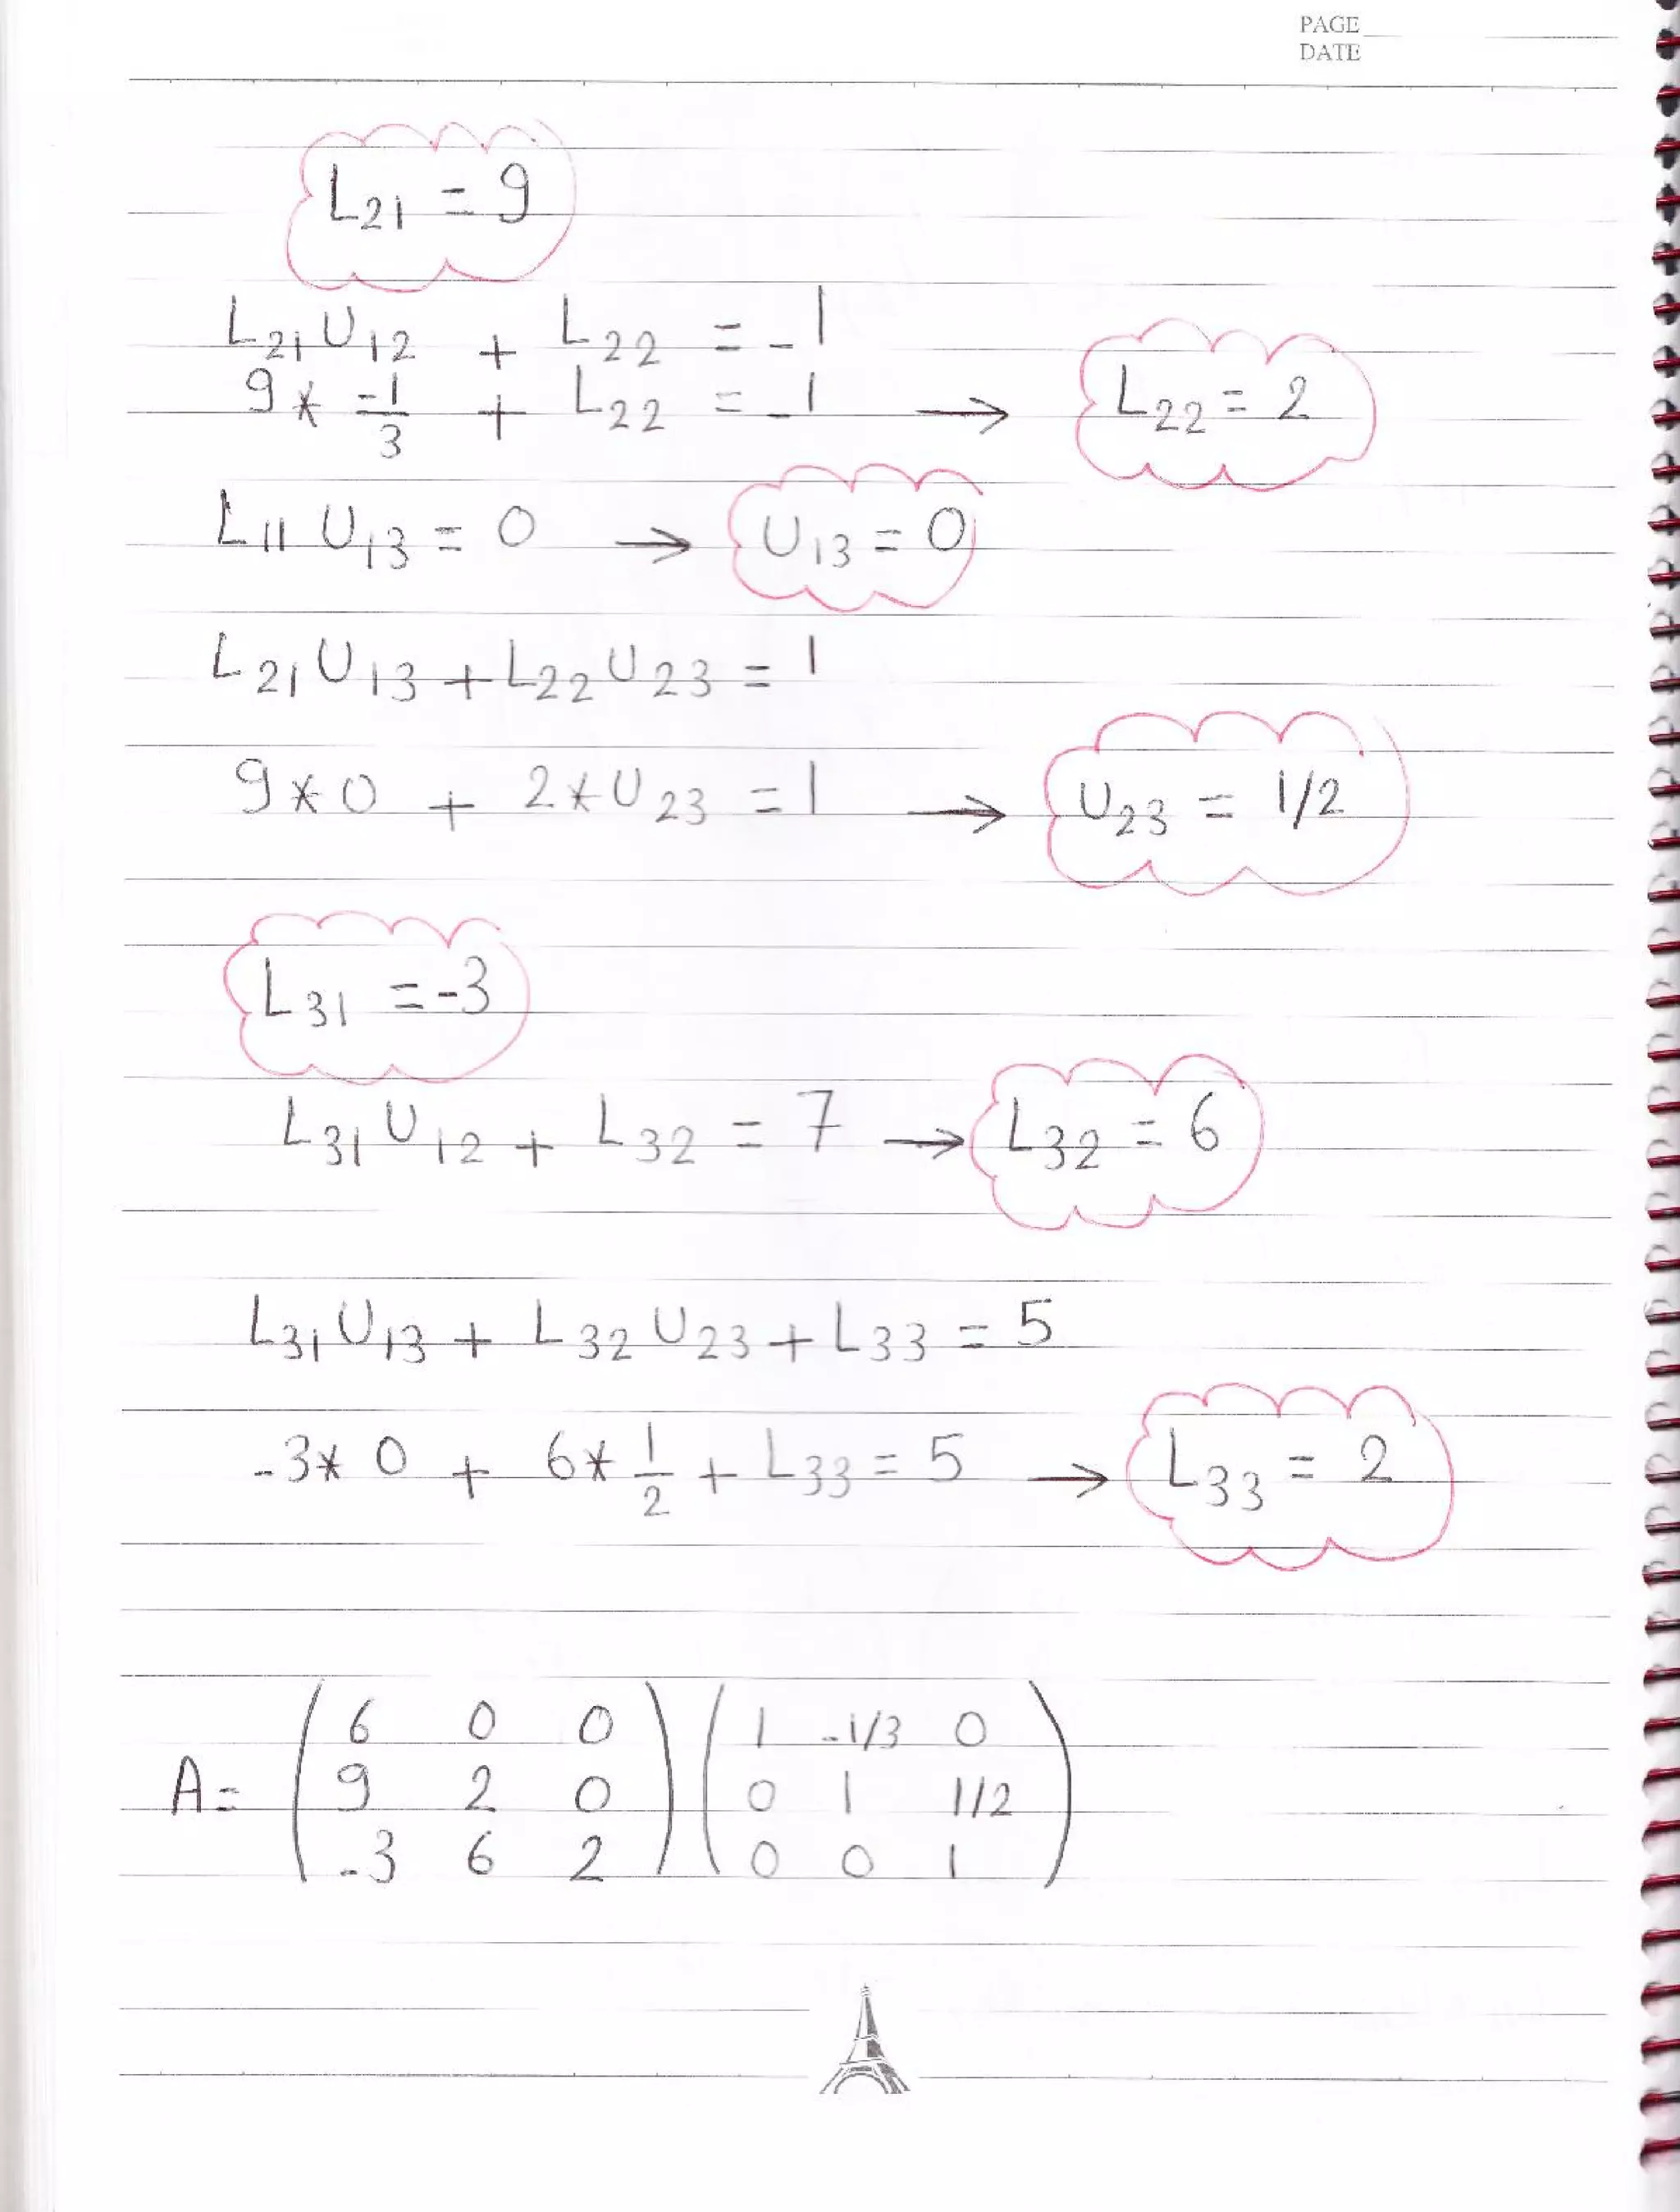 PAGE
DATE
L21 = 9
L21 U12 + L22 = -1
9 * -1/3 + L22 = -1 → L22 = 2
L11 U13 = 0 → U13 = 0
L21 U13 + L22 U23 = 1
9 * 0 + 2 * U23 = 1 → U23 = 1/2
L31 = -3
L31 U12 + L32 = 7 → L32 = 6
L31 U13 + L32 U23 + L33 = 5
-3 * 0 + 6 * 1/2 + L33 = 5 → L33 = 2
6 0 0 1 -1/3 0
A = 9 2 0 0 1 1/2
-3 6 2 0 0 1